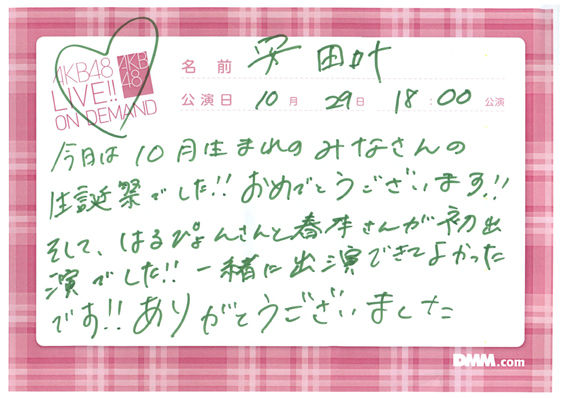 AKB48
LIVE!!
ON DEMAND
AKB
48
名前 安田叶
公演日 10月 29日 18:00 公演
今日は10月生まれのみなさんの
生誕祭でした!! おめでとうございます!!
そして、はるぴょんさんと春本さんが初出
演でした!! 一緒に出演できてよかった
です!! ありがとうございました
DMM.com